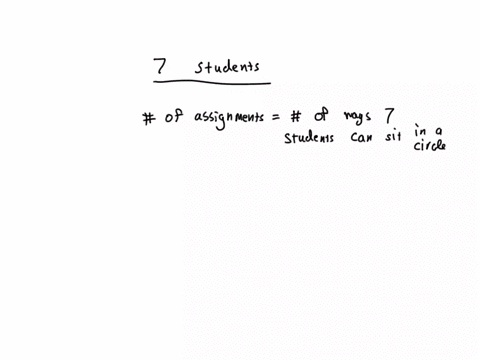 7 students
# of assignments = # of ways 7
students can sit in a
circle